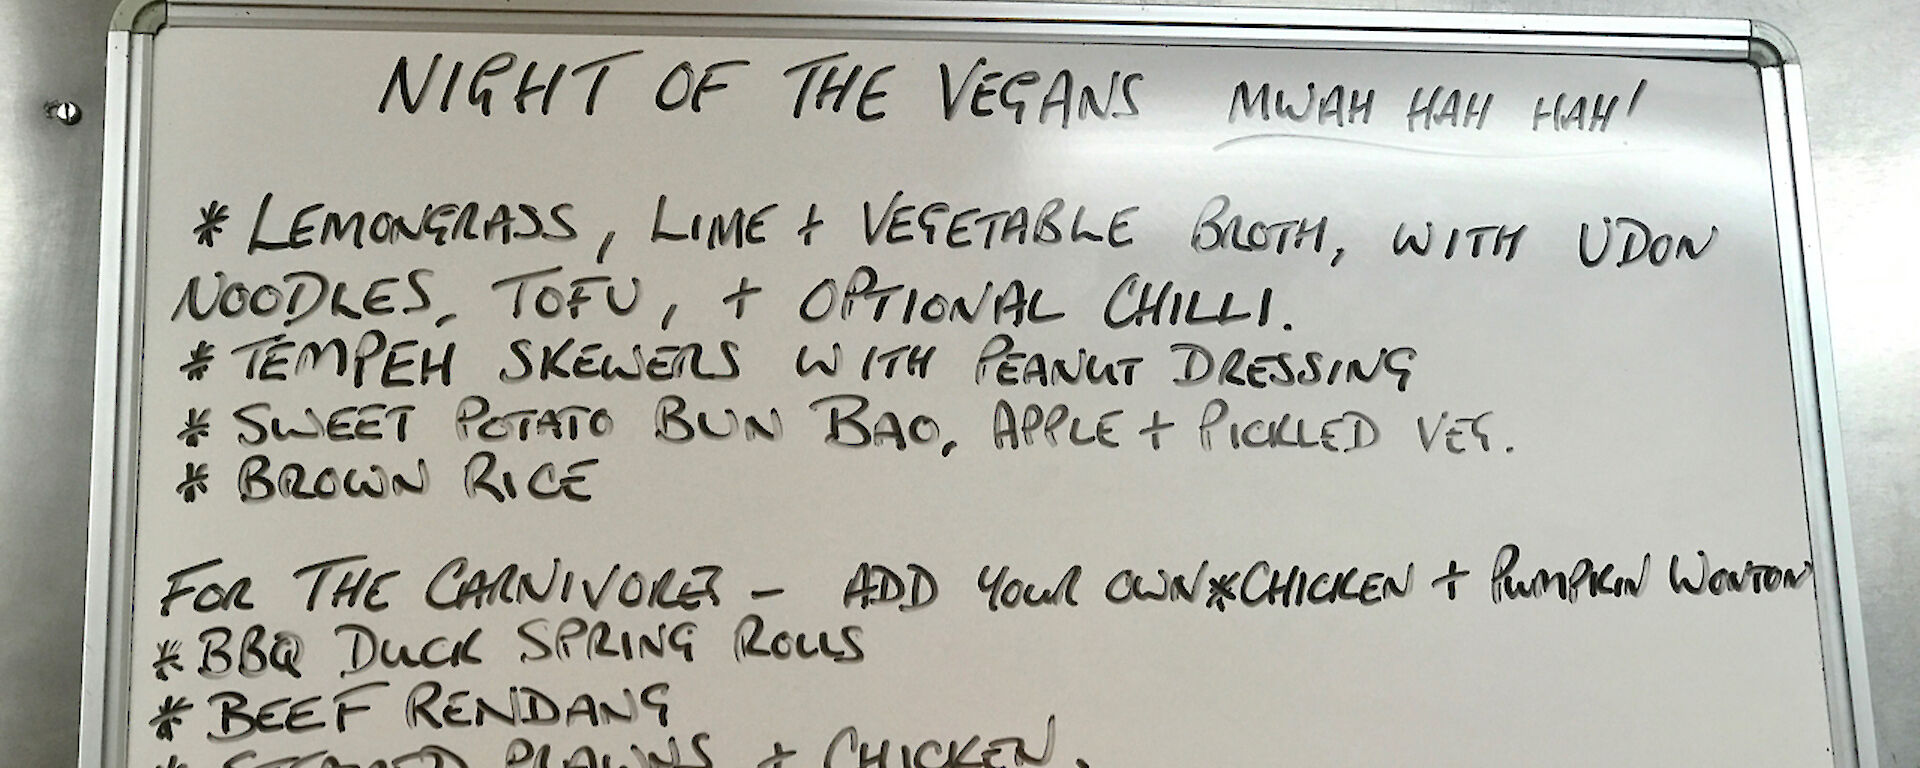 NIGHT OF THE VEGANS MWAH HAH HAH!
* LEMONGRASS, LIME + VEGETABLE BROTH, WITH UDON
NOODLES, TOFU, + OPTIONAL CHILLI.
* TEMPEH SKEWERS WITH PEANUT DRESSING
* SWEET POTATO BUN BAO, APPLE + PICKLED VEG.
* BROWN RICE
FOR THE CARNIVORES - ADD YOUR OWN * CHICKEN + PUMPKIN WONTON
* BBQ DUCK SPRING ROLLS
* BEEF RENDANG
* STEAMED PRAWNS + CHICKEN.